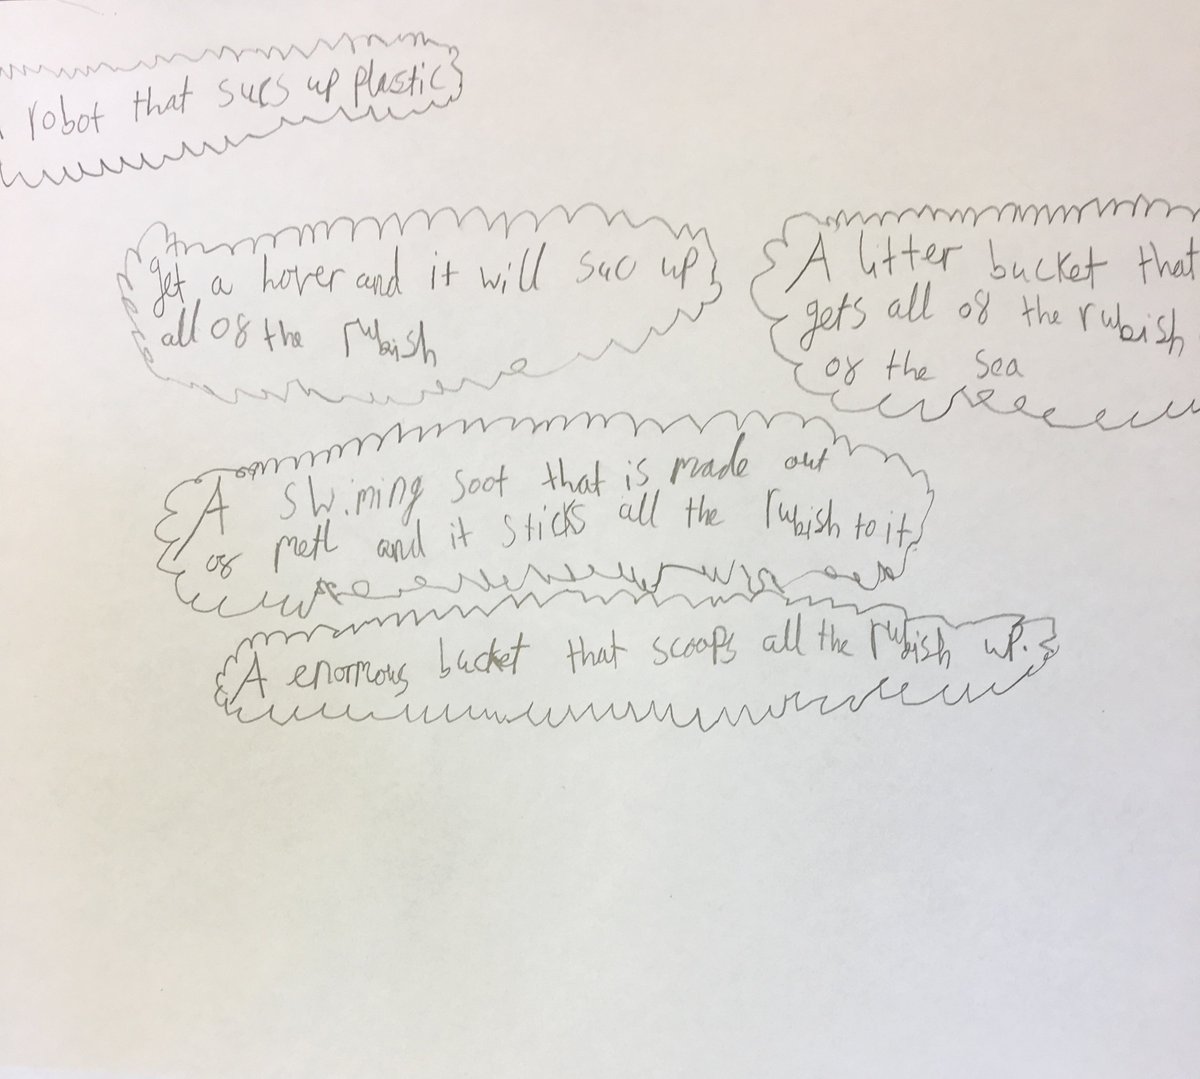 robot that sucs up plastic
get a hover and it will suc up
all of the rubish
A litter bucket that
gets all of the rubish
of the sea
A swiming soot that is made out
of metl and it sticks all the rubish to it
A enormous bucket that scoops all the rubish up.